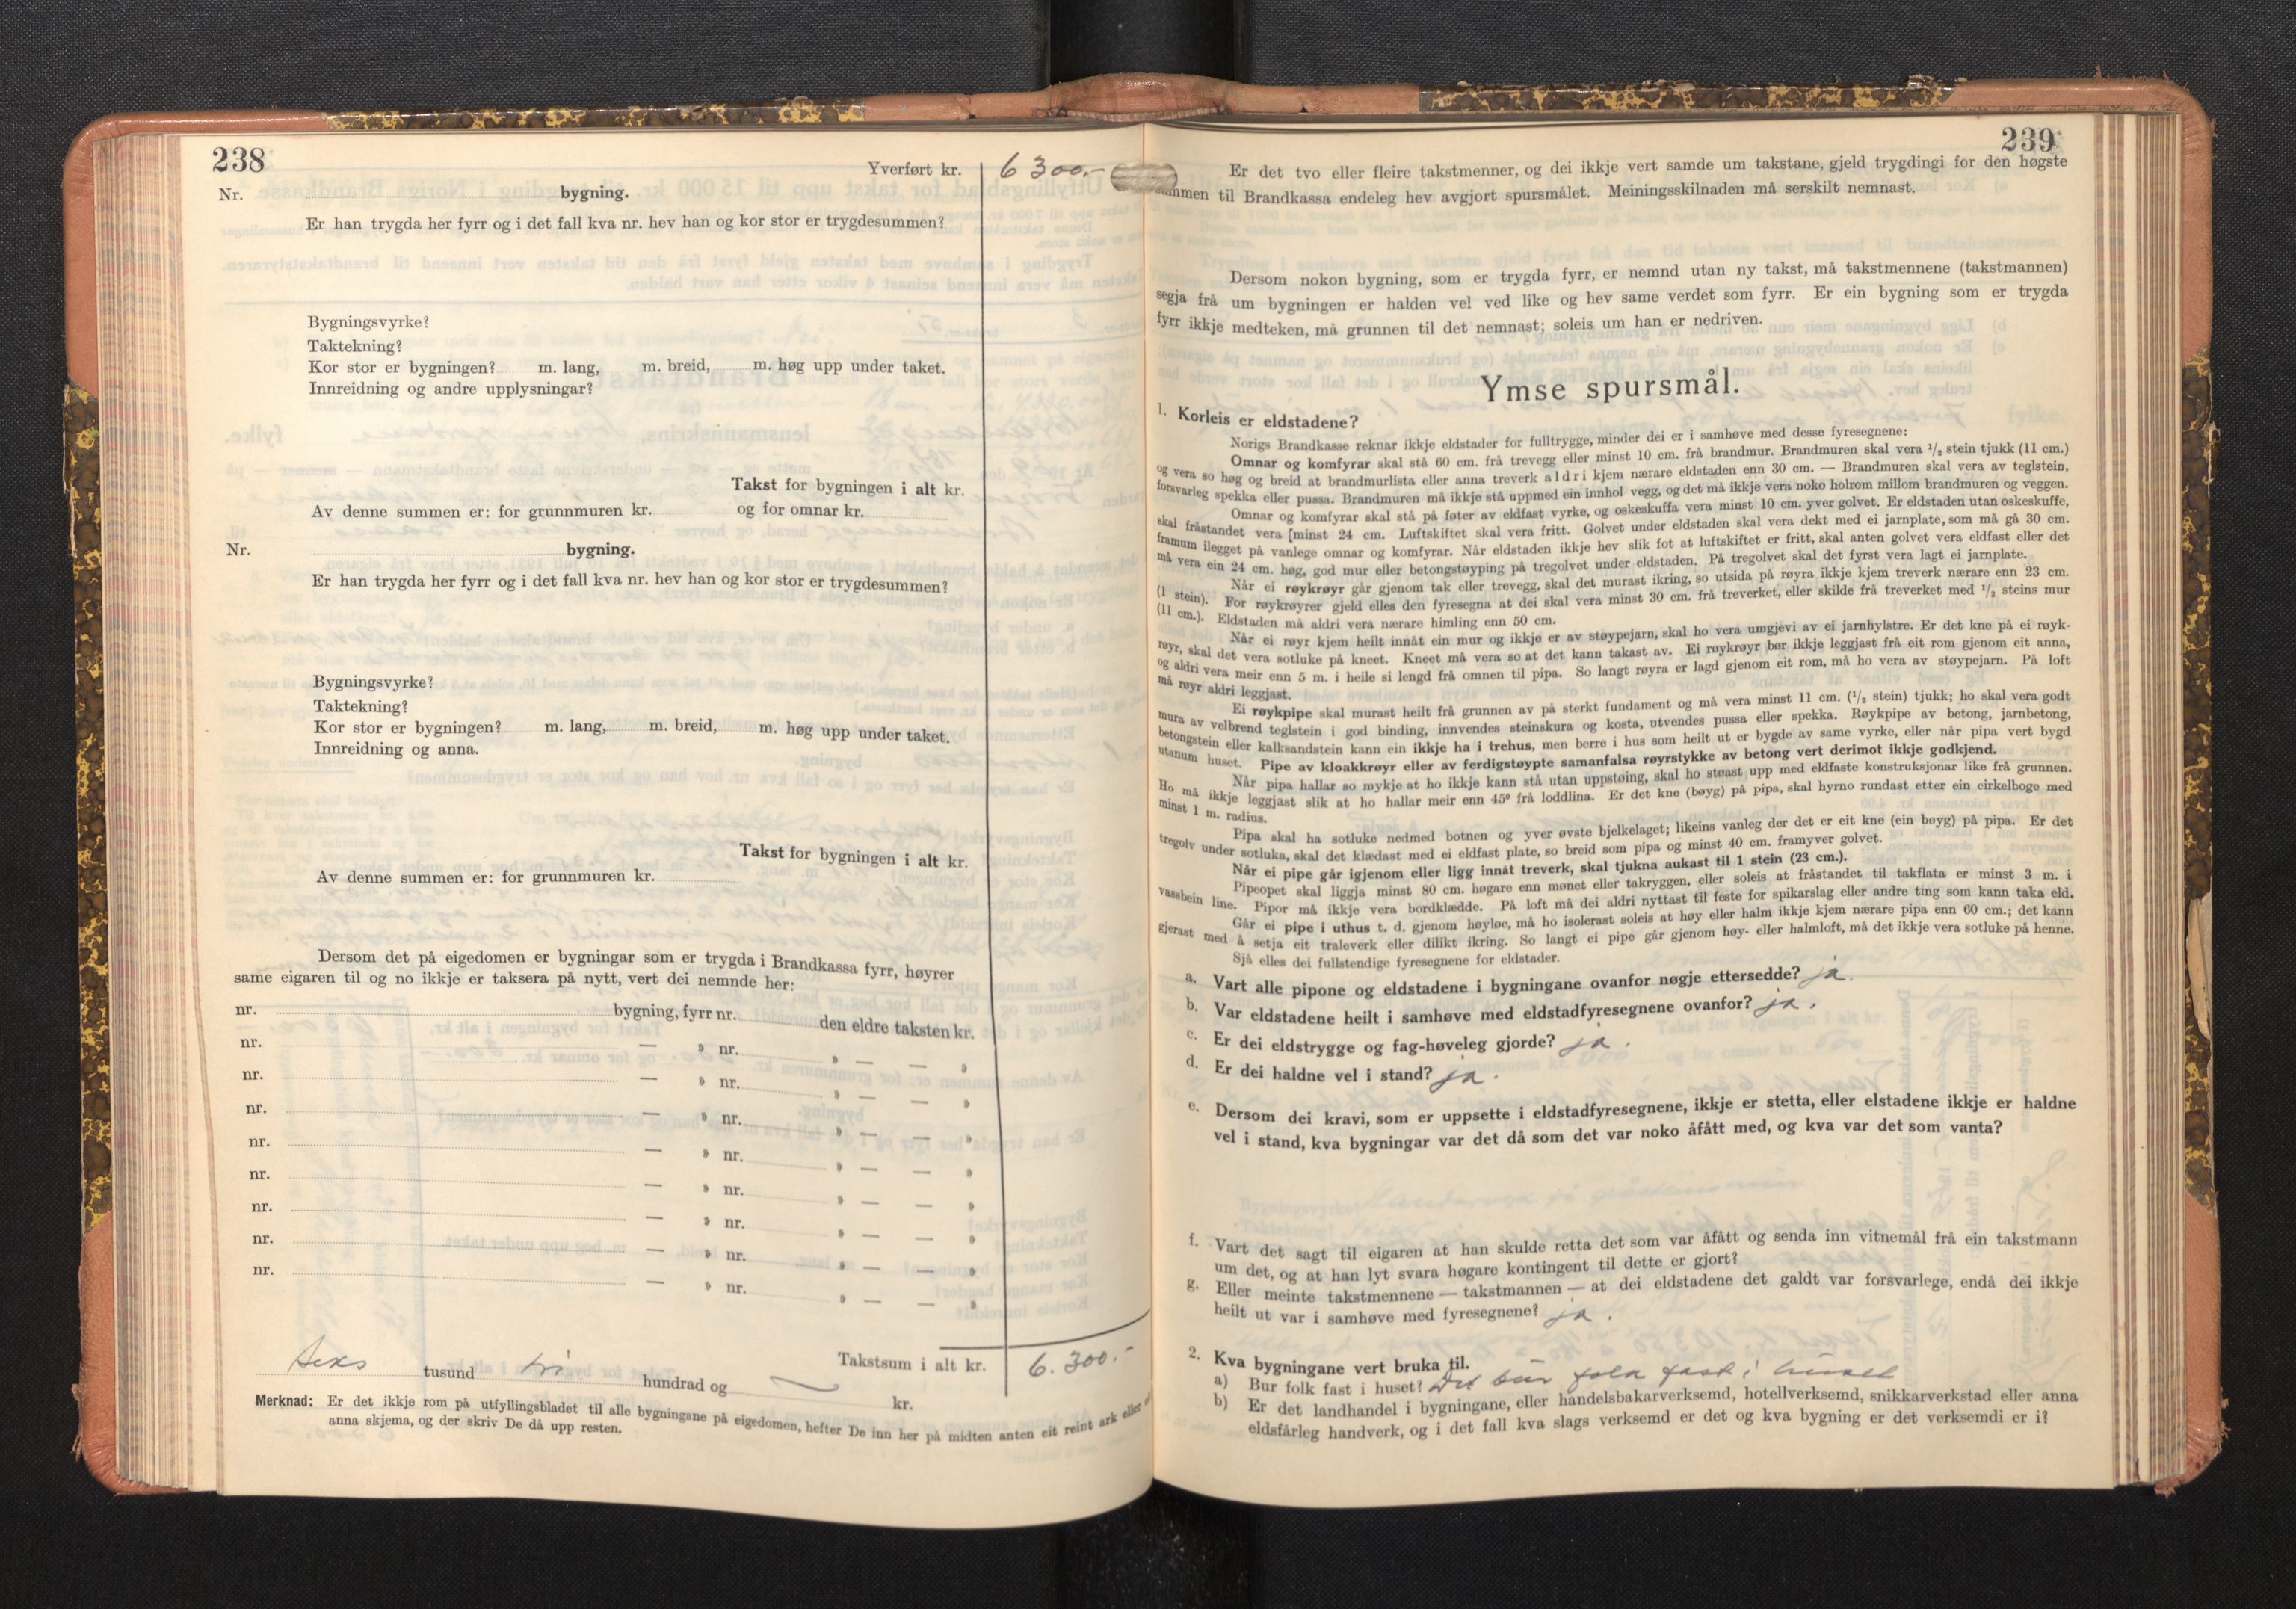 238
Yverført kr. 6300.-
Nr. bygning.
Er han trygda her fyrr og i det fall kva nr. hev han og kor stor er trygdesummen?
Bygningsvyrke?
Taktekning?
Kor stor er bygningen? m. lang, m. breid, m. høg upp under taket.
Innreidning og andre upplysningar?
Takst for bygningen i alt kr.
Av denne summen er: for grunnmuren kr. og for omnar kr.
Nr. bygning.
Er han trygda her fyrr og i det fall kva nr. hev han og kor stor er trygdesummen?
Bygningsvyrke?
Taktekning?
Kor stor er bygningen? m. lang, m. breid, m. høg upp under taket.
Innreidning og anna.
Takst for bygningen i alt kr.
Av denne summen er: for grunnmuren kr.
Dersom det på eigedomen er bygningar som er trygda i Brandkassa fyrr, høyrer
same eigaren til og no ikkje er taksera på nytt, vert dei nemnde her:
nr. bygning, fyrr nr. den eldre taksten kr.
nr. — » nr. » — — »
nr. — » nr. » — — »
nr. — » nr. » — — »
nr. — » nr. » — — »
nr. — » nr. » — — »
nr. — » nr. » — — »
nr. — » nr. » — — »
nr. — » nr. » — — »
Takstsum i alt kr. 6.300.-
seks tusund tri hundrad og — kr.
Merknad: Er det ikkje rom på utfyllingsbladet til alle bygningane på eigedomen, hefter De inn her på midten anten eit reint ark eller
anna skjema, og der skriv De då upp resten.
239
Er det tvo eller fleire takstmenner, og dei ikkje vert samde um takstane, gjeld trygdingi for den høgste
summen til Brandkassa endeleg hev avgjort spursmålet. Meiningsskilnaden må serskilt nemnast.
Dersom nokon bygning, som er trygda fyrr, er nemnd utan ny takst, må takstmennene (takstmannen)
segja frå um bygningen er halden vel ved like og hev same verdet som fyrr. Er ein bygning som er trygda
fyrr ikkje medteken, må grunnen til det nemnast; soleis um han er nedriven.
Ymse spursmål.
1. Korleis er eldstadene?
Norigs Brandkasse reknar ikkje eldstader for fulltrygge, minder dei er i samhøve med desse fyresegnene:
Omnar og komfyrar skal stå 60 cm. frå trevegg eller minst 10 cm. frå brandmur. Brandmuren skal vera 1/2 stein tjukk (11 cm.)
og vera so høg og breid at brandmurlista eller anna treverk aldri kjem nærare eldstaden enn 30 cm. — Brandmuren skal vera av teglstein,
forsvarleg spekka eller pussa. Brandmuren må ikkje stå uppmed ein innhol vegg, og det må ikkje vera noko holrom millom brandmuren og veggen.
Omnar og komfyrar skal stå på føter av eldfast vyrke, og oskeskuffa vera minst 10 cm. yver golvet. Er eldstaden utan oskeskuffe,
skal fråstandet vera [minst 24 cm. Luftskiftet skal vera fritt. Golvet under eldstaden skal vera dekt med ei jarnplate, som må gå 30 cm.
framum ilegget på vanlege omnar og komfyrar. Når eldstaden ikkje hev slik fot at luftskiftet er fritt, skal anten golvet vera eldfast eller det
må vera ein 24 cm. høg, god mur eller betongstøyping på tregolvet under eldstaden. På tregolvet skal det fyrst vera lagt ei jarnplate.
Når ei røykrøyr går gjenom tak eller trevegg, skal det murast ikring, so utsida på røyra ikkje kjem treverk nærare enn 23 cm.
(1 stein). For røykrøyrer gjeld elles den fyresegna at dei skal vera minst 30 cm. frå treverket, eller skilde frå treverket med 1/2 steins mur
(11 cm.). Eldstaden må aldri vera nærare himling enn 50 cm.
Når ei røyr kjem heilt innåt ein mur og ikkje er av støypejarn, skal ho vera umgjevi av ei jarnhylstre. Er det kne på ei røyk-
røyr, skal det vera sotluke på kneet. Kneet må vera so at det kann takast av. Ei røykrøyr bør ikkje leggjast frå eit rom gjenom eit anna,
og aldri vera meir enn 5 m. i heile si lengd frå omnen til pipa. So langt røyra er lagd gjenom eit rom, må ho vera av støypejarn. På loft
må røyr aldri leggjast.
Ei røykpipe skal murast heilt frå grunnen av på sterkt fundament og må vera minst 11 cm. (1/2 stein) tjukk; ho skal vera godt
mura av velbrend teglstein i god binding, innvendes steinskura og kosta, utvendes pussa eller spekka. Røykpipe av betong, jarnbetong,
betongstein eller kalksandstein kann ein ikkje ha i trehus, men berre i hus som heilt ut er bygde av same vyrke, eller når pipa vert bygd
utanum huset. Pipe av kloakkrøyr eller av ferdigstøypte samanfalsa røyrstykke av betong vert derimot ikkje godkjend.
Når pipa hallar so mykje at ho ikkje kann stå utan uppstøing, skal ho støast upp med eldfaste konstruksjonar like frå grunnen.
Ho må ikkje leggjast slik at ho hallar meir enn 45° frå loddlina. Er det kne (bøyg) på pipa, skal hyrno rundast etter ein cirkelboge med
minst 1 m. radius.
Pipa skal ha sotluke nedmed botnen og yver øvste bjelkelaget; likeins vanleg der det er eit kne (ein bøyg) på pipa. Er det
tregolv under sotluka, skal det klædast med ei eldfast plate, so breid som pipa og minst 40 cm. framyver golvet.
Når ei pipe går igjenom eller ligg innåt treverk, skal tjukna aukast til 1 stein (23 cm.).
Pipeopet skal liggja minst 80 cm. høgare enn mønet eller takryggen, eller soleis at fråstandet til takflata er minst 3 m. i
vassbein line. Pipor må ikkje vera bordklædde. På loft må dei aldri nyttast til feste for spikarslag eller andre ting som kann taka eld.
Går ei pipe i uthus t. d. gjenom høyløe, må ho isolerast soleis at høy eller halm ikkje kjem nærare pipa enn 60 cm.; det kann
gjerast med å setja eit traleverk eller dilikt ikring. So langt ei pipe går gjenom høy- eller halmloft, må det ikkje vera sotluke på henne.
Sjå elles dei fullstendige fyresegnene for eldstader.
a. Vart alle pipone og eldstadene i bygningane ovanfor nøgje ettersedde? ja.
b. Var eldstadene heilt i samhøve med eldstadfyresegnene ovanfor? ja.
c. Er dei eldstrygge og fag-høveleg gjorde? ja.
d. Er dei haldne vel i stand? ja.
e. Dersom dei kravi, som er uppsette i eldstadfyresegnene, ikkje er stetta, eller elstadene ikkje er haldne
vel i stand, kva bygningar var det då som det var noko åfått med, og kva var det som vanta?
f. Vart det sagt til eigaren at han skulde retta det som var åfått og senda inn vitnemål frå ein takstmann
um det, og at han lyt svara høgare kontingent til dette er gjort?
g. Eller meinte takstmennene — takstmannen — at dei eldstadene det galdt var forsvarlege, endå dei ikkje
heilt ut var i samhøve med fyresegnene? ja.
2. Kva bygningane vert bruka til.
a) Bur folk fast i huset? Det bur folk fast i huset
b) Er det landhandel i bygningane, eller handelsbakarverksemd, hotellverksemd, snikkarverkstad eller anna
eldsfårleg handverk, og i det fall kva slags verksemd er det og kva bygning er det verksemdi er i?